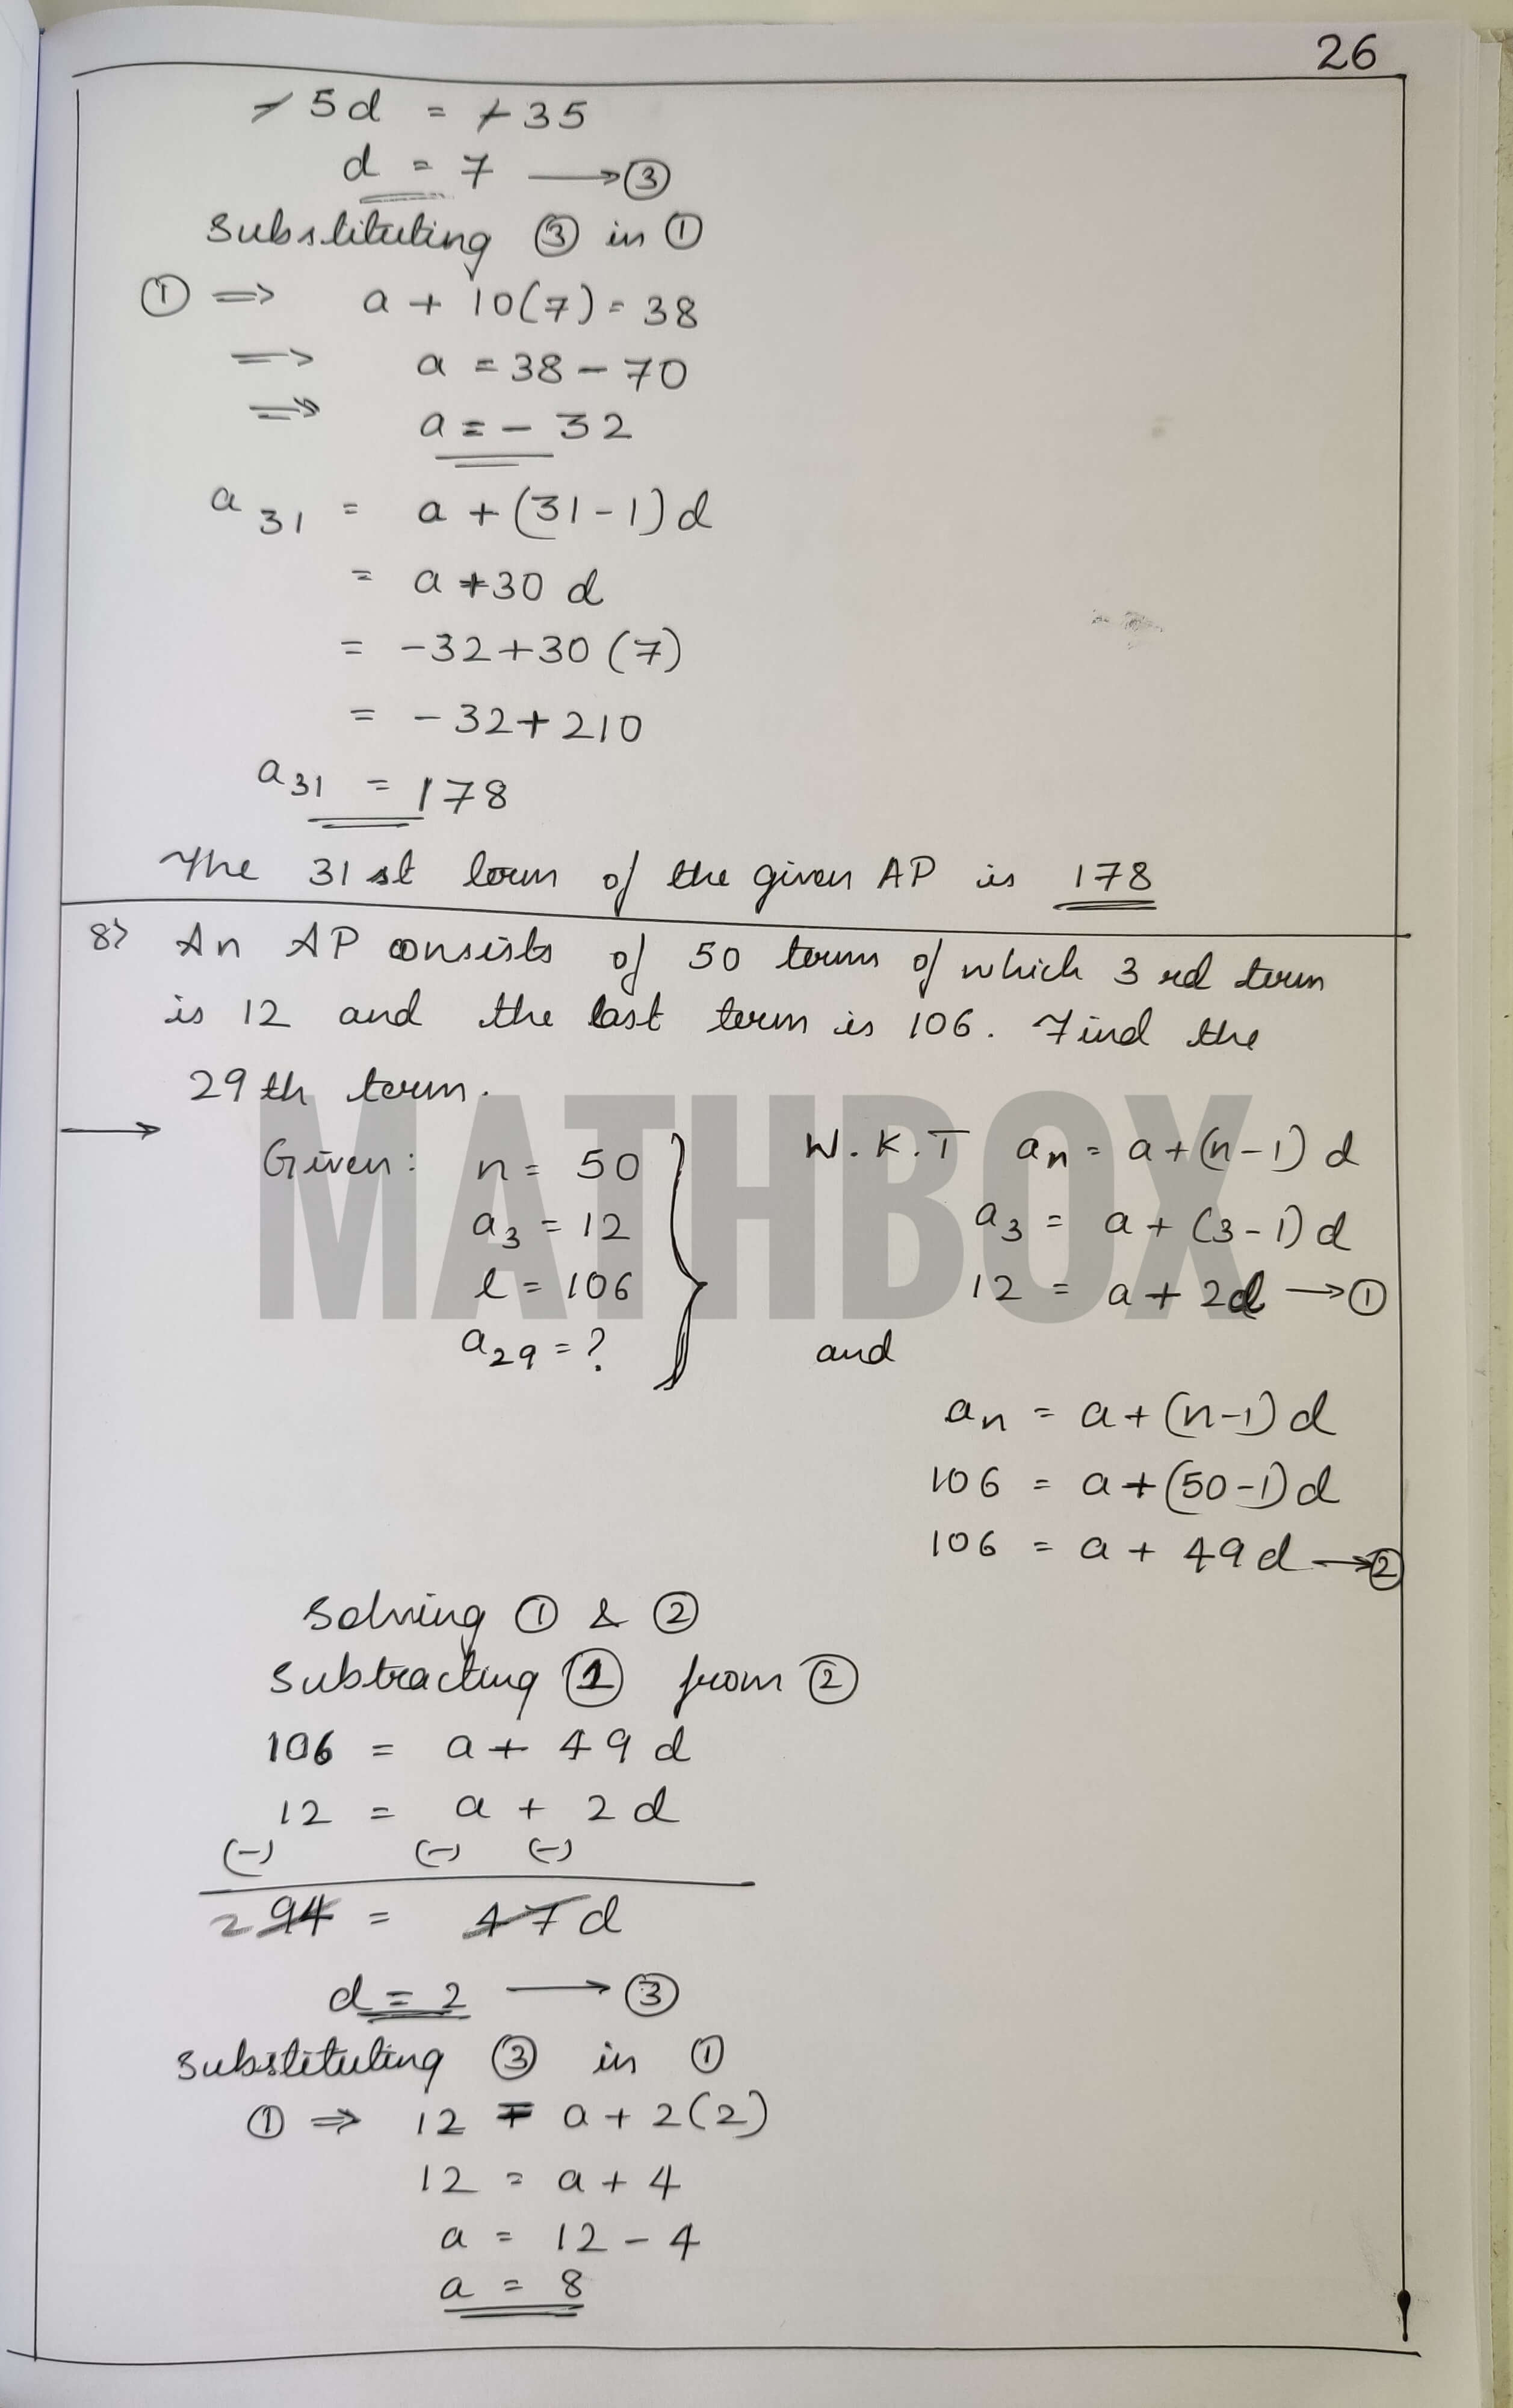 26
-5d = -35
d = 7 ⟶ ③
Substituting ③ in ①
① ⇒ a + 10(7) = 38
⇒ a = 38 - 70
⇒ a = - 32
a₃₁ = a + (31-1)d
= a + 30 d
= -32 + 30 (7)
= - 32 + 210
a₃₁ = 178
The 31st term of the given AP is 178
8) An AP consists of 50 terms of which 3rd term
is 12 and the last term is 106. Find the
29th term.
MATHBOX
⟶
Given: n = 50
a₃ = 12
l = 106
a₂₉ = ?
W.K.T aₙ = a + (n-1) d
a₃ = a + (3-1) d
12 = a + 2d ⟶ ①
and
aₙ = a + (n-1) d
106 = a + (50-1) d
106 = a + 49d ⟶ ②
Solving ① & ②
Subtracting ① from ②
106 = a + 49 d
12 = a + 2 d
(-) (-) (-)
2 94 = 47 d
d = 2 ⟶ ③
Substituting ③ in ①
① ⇒ 12 = a + 2(2)
12 = a + 4
a = 12 - 4
a = 8